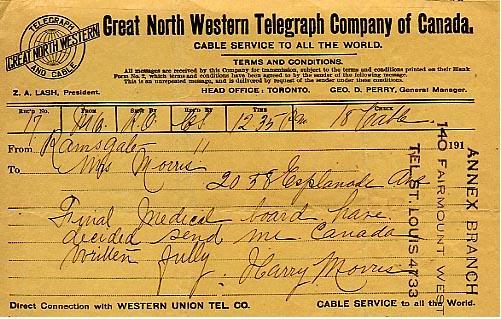 TELEGRAPH
GREAT NORTH WESTERN
AND CABLE
Great North Western Telegraph Company of Canada.
CABLE SERVICE TO ALL THE WORLD.
TERMS AND CONDITIONS.
All messages are received by this Company for transmission, subject to the terms and conditions printed on their Blank
Form No. 2, which terms and conditions have been agreed to by the sender of the following message.
This is an unrepeated message, and is delivered by request of the sender under these conditions.
Z. A. LASH, President.
HEAD OFFICE: TORONTO.
GEO. D. PERRY, General Manager.
REC'D No. FROM SENT BY REC'D BY TIME CHECK
17 12.35 18 Cable
From Ramsgate 191
To Mrs Morris
2058 Esplanade Ave
Final Medical board have
decided send me Canada
written fully.
Harry Morris
ANNEX BRANCH
140 FAIRMOUNT WEST
TEL. ST. LOUIS 4733
Direct Connection with WESTERN UNION TEL. CO.
CABLE SERVICE to all the World.